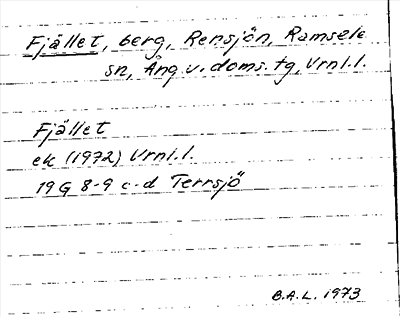 Fjället, berg, Rensjön, Ramsele
sn, Ång.v.doms.tg, Vrnl.l.
Fjället
ek (1972) Vrnl.l.
19 G 8-9 c-d Terrsjö
B.A.L. 1973